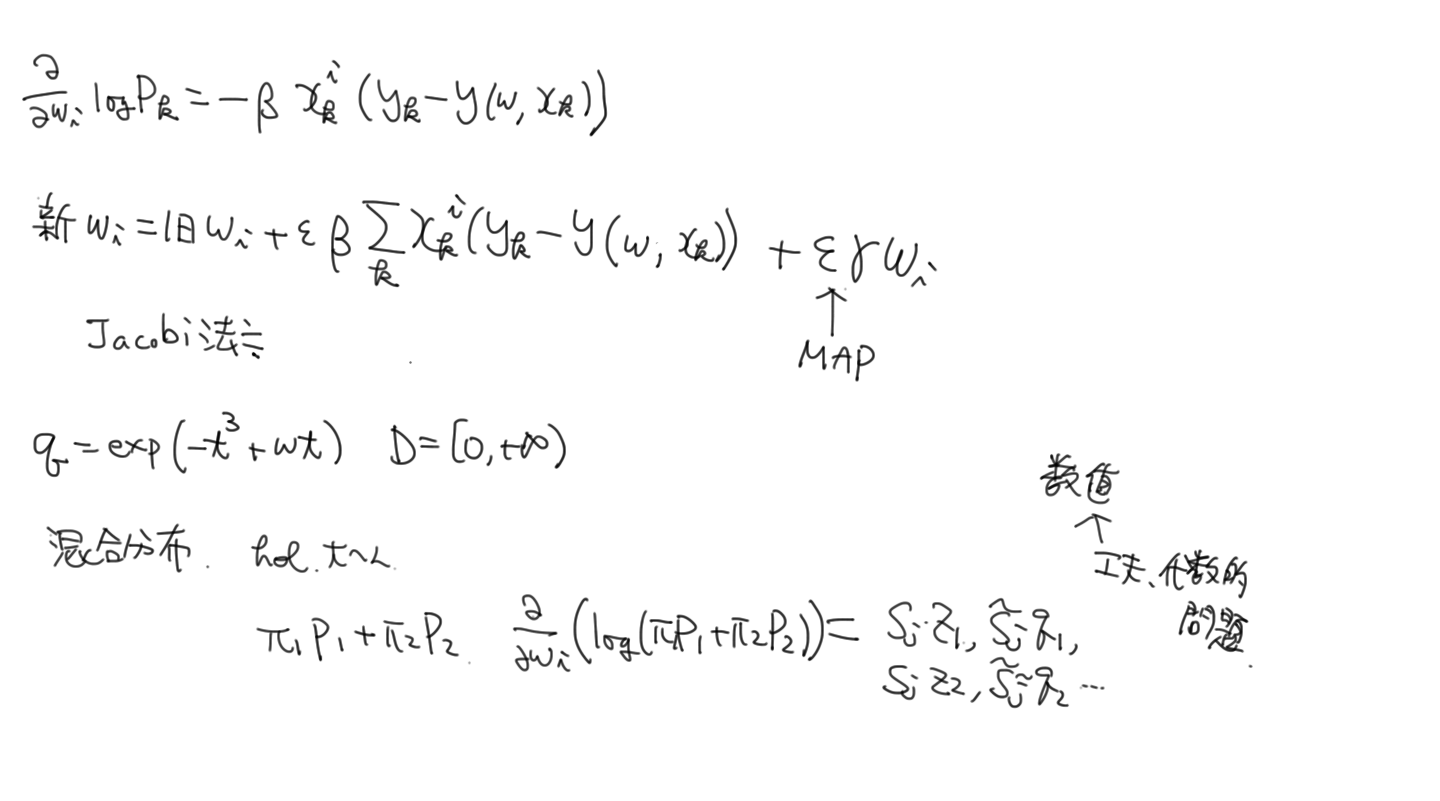 ∂/∂w_i log P_k = -β x_k^i (y_k - y(w, x_k))
新 w_i = 旧 w_i + ε β Σ_k x_k^i (y_k - y(w, x_k)) + ε γ w_i
↑
Jacobi法
MAP
q = exp(-t^3 + wt) D = [0, +∞)
数値
↑
混合分布. hol.
工夫、代数的
問題.
π_1 P_1 + π_2 P_2 ∂/∂w_i (log(π_1 P_1 + π_2 P_2)) = S_i・Z_1, S̃_j q_1,
S_j Z_2, S̃_j q_2 …